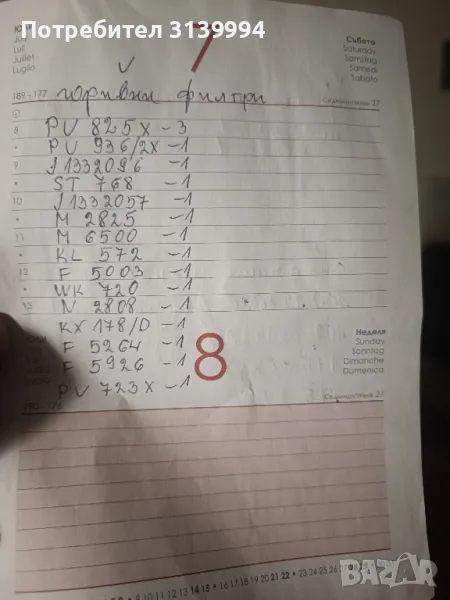 Потребител 3139994
7
Юли
July
Juli
Juillet
Luglio
Събота
Saturday
Samstag
Samedi
Sabato
189 - 177
Седмица/Week 27
горивни филтри
8 PU 825X - 3
PU 936/2X - 1
9 J1332096 - 1
ST 768 - 1
10 J1332057 - 1
M 2825 - 1
11 M 6500 - 1
KL 572 - 1
12 F 5003 - 1
WK 720 - 1
13 N 2808 - 1
KX 178/D - 1
F 5264 - 1
F 5926 - 1
PU 723X - 1
8
Неделя
Sunday
Sonntag
Dimanche
Domenica
190 - 176
Седмица/Week 27
9 10 11 12 13 14 15 • 16 17 18 19 20 21 22 • 23 24 25 26 27
BAZAR